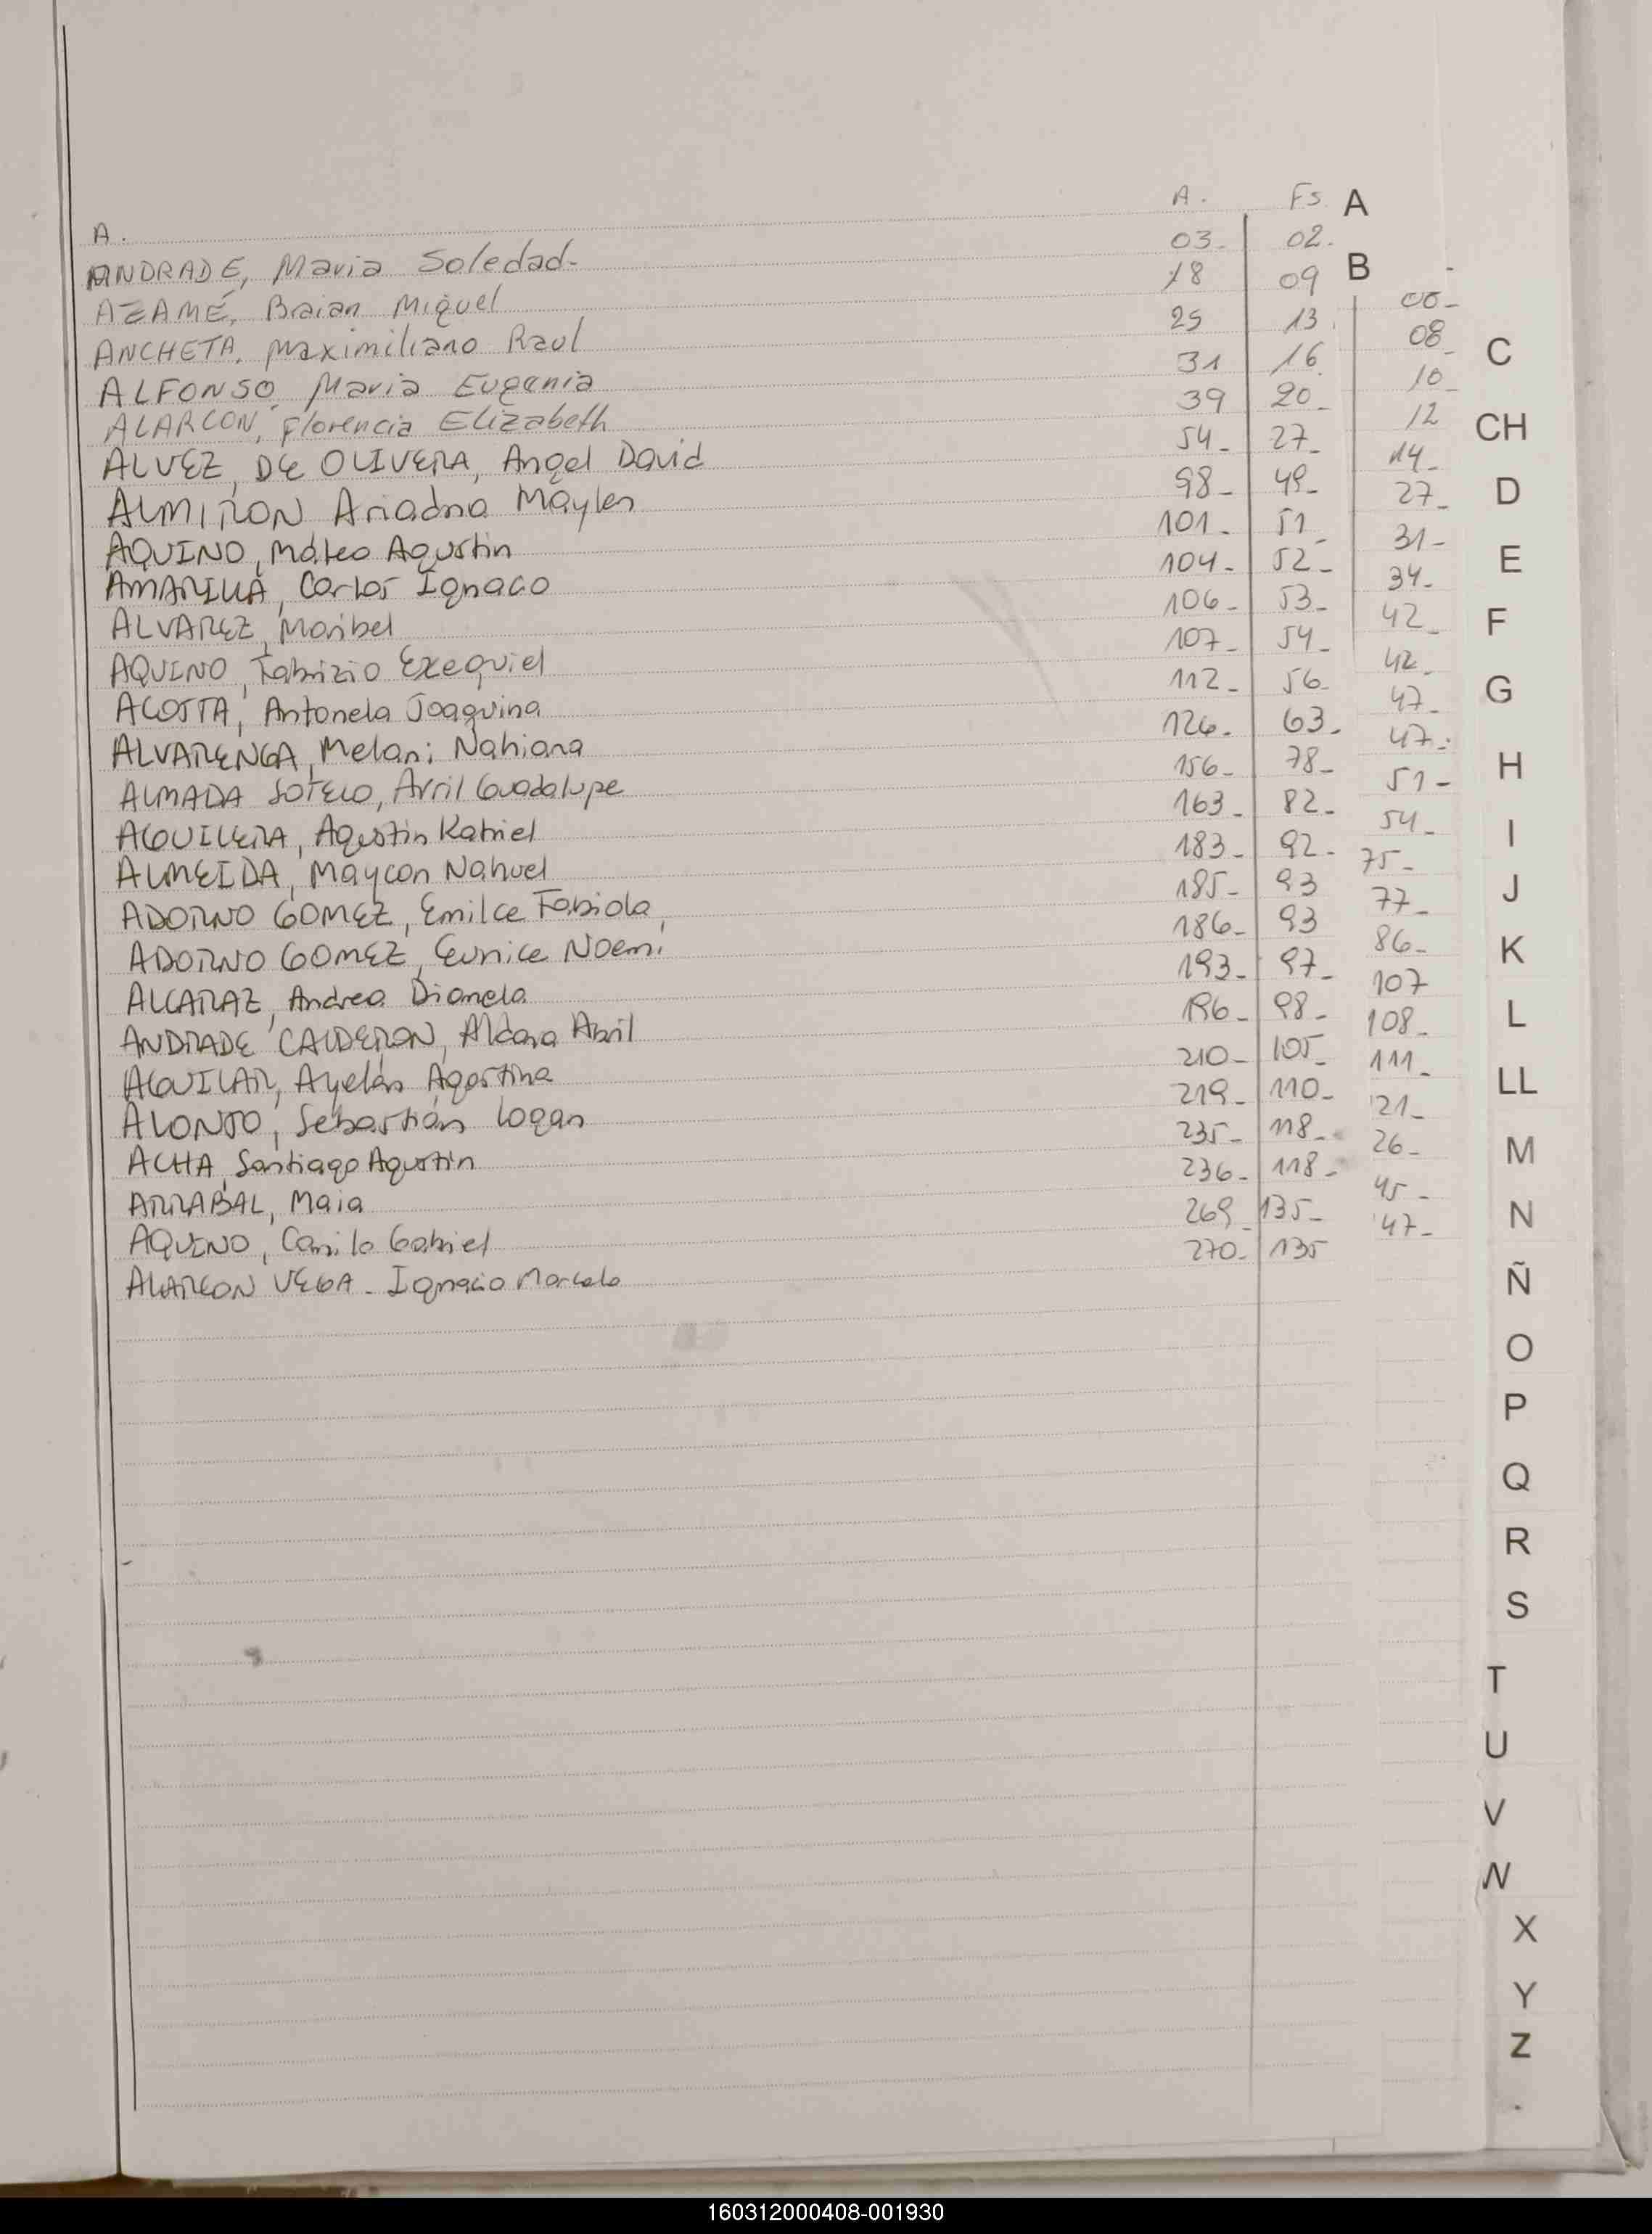 A. A. Fs. A
ANDRADE, Maria Soledad- 03- 02.
AZAMÉ, Braian Miguel 18 09 B
ANCHETA, Maximiliano Raul 25 13. 06-
ALFONSO, Maria Eugenia 31 16. 08- C
ALARCON, Florencia Elizabeth 39 20- 10-
ALVEZ, DE OLIVERA, Angel David 54- 27- 12 CH
ALMIRON Ariadna Maylen 98- 49- 14-
AQUINO, Mateo Agustin 101- 51- 27- D
AMARILLA, Carlos Ignacio 104- 52- 31-
ALVAREZ, Maribel 106- 53- 34- E
AQUINO, Fabrizio Exequiel 107- 54- 42-
ACOSTA, Antonela Joaquina 112- 56- 42- F
ALVARENGA, Melani Nahiara 126- 63- 47- G
ALMADA SOTELO, Avril Guadalupe 156- 78- 47-
AGUILERA, Agustin Katriel 163- 82- 51- H
ALMEIDA, Maycon Nahuel 183- 92- 54- I
ADORNO GOMEZ, Emilce Fabiola 185- 93 75-
ADORNO GOMEZ, Eunice Noemi 186- 93 77- J
ALCARAZ, Andrea Dianela 193- 97- 86- K
ANDRADE CALDERON, Aldana Abril 196- 98- 107
AGUILAR, Ayelén Agostina 210- 105- 108- L
ALONSO, Sebastián Logan 219- 110- 111-
ACHA, Santiago Agustin 235- 118- 21- LL
ARRABAL, Maia 236- 118- 26- M
AQUINO, Camilo Gabriel 269- 135- 45-
ALARCON VEGA- Ignacio Marcelo 270- 135 47- N
Ñ
O
P
Q
R
S
T
U
V
W
X
Y
Z
160312000408-001930